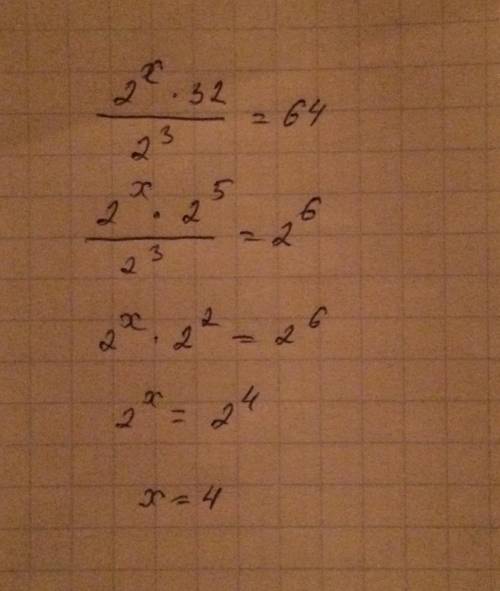 2^x · 32 / 2^3 = 64
2^x · 2^5 / 2^3 = 2^6
2^x · 2^2 = 2^6
2^x = 2^4
x = 4